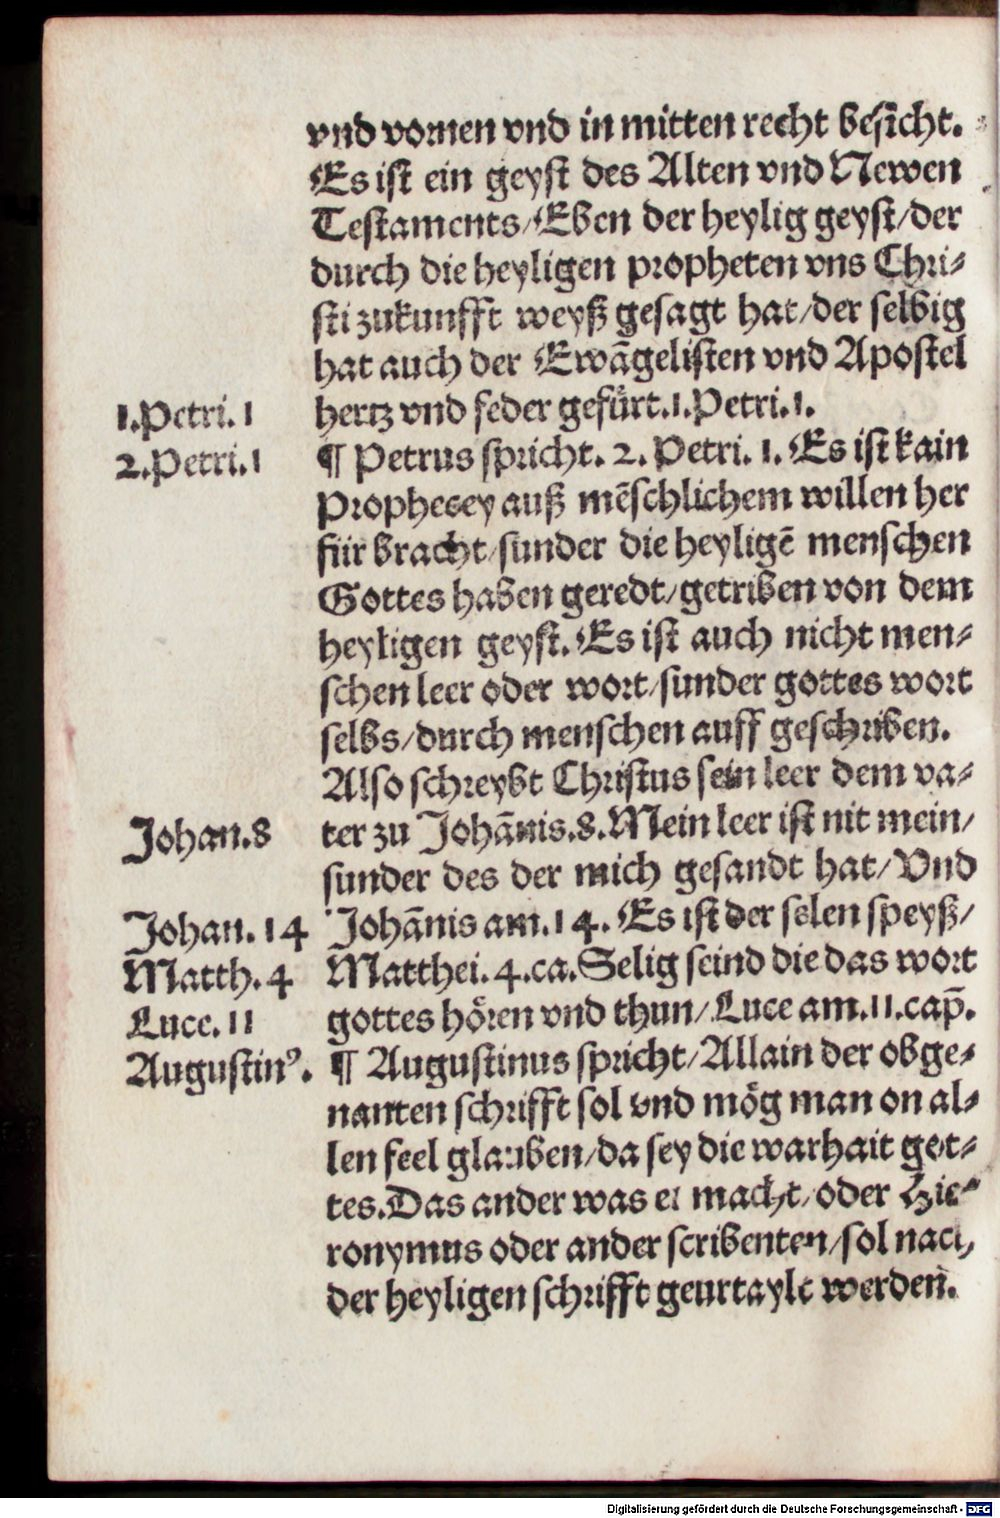 vnd vornen vnd in mitten recht besicht.
Es ist ein geyst des Alten vnd Newen
Testaments/Eben der heylig geyst/der
durch die heyligen propheten vns Chri⸗
sti zukunfft weyß gesagt hat/der selbig
hat auch der Ewãgelisten vnd Apostel
1.Petri.1 hertz vnd feder gefürt.1.Petri.1.
2.Petri.1 ¶ Petrus spricht. 2. Petri. 1. Es ist kain
Prophecey auß mẽschlichem willen her
für bracht/sunder die heyligẽ menschen
Gottes haben geredt/getriben von dem
heyligen geyst. Es ist auch nicht men⸗
schen leer oder wort/sunder gottes wort
selbs/durch menschen auff geschriben.
Also schreybt Christus sein leer dem va⸗
Johan.8 ter zu Johãnis.8. Mein leer ist nit mein/
sunder des der mich gesandt hat/Vnd
Johan. 14 Johãnis am.14. Es ist der selen speyß/
Matth.4 Matthei.4.ca.Selig seind die das wort
Luce.11 gottes hören vnd thun/Luce am.11.cap̃.
Augustinꝰ. ¶ Augustinus spricht/Allain der obge⸗
nanten schrifft sol vnd mög man on al⸗
len feel glauben/da sey die warhait got⸗
tes.Das ander was er macht/oder Hie⸗
ronymus oder ander scribenten/sol nach
der heyligen schrifft geurtaylt werden.
Digitalisierung gefördert durch die Deutsche Forschungsgemeinschaft - DFG